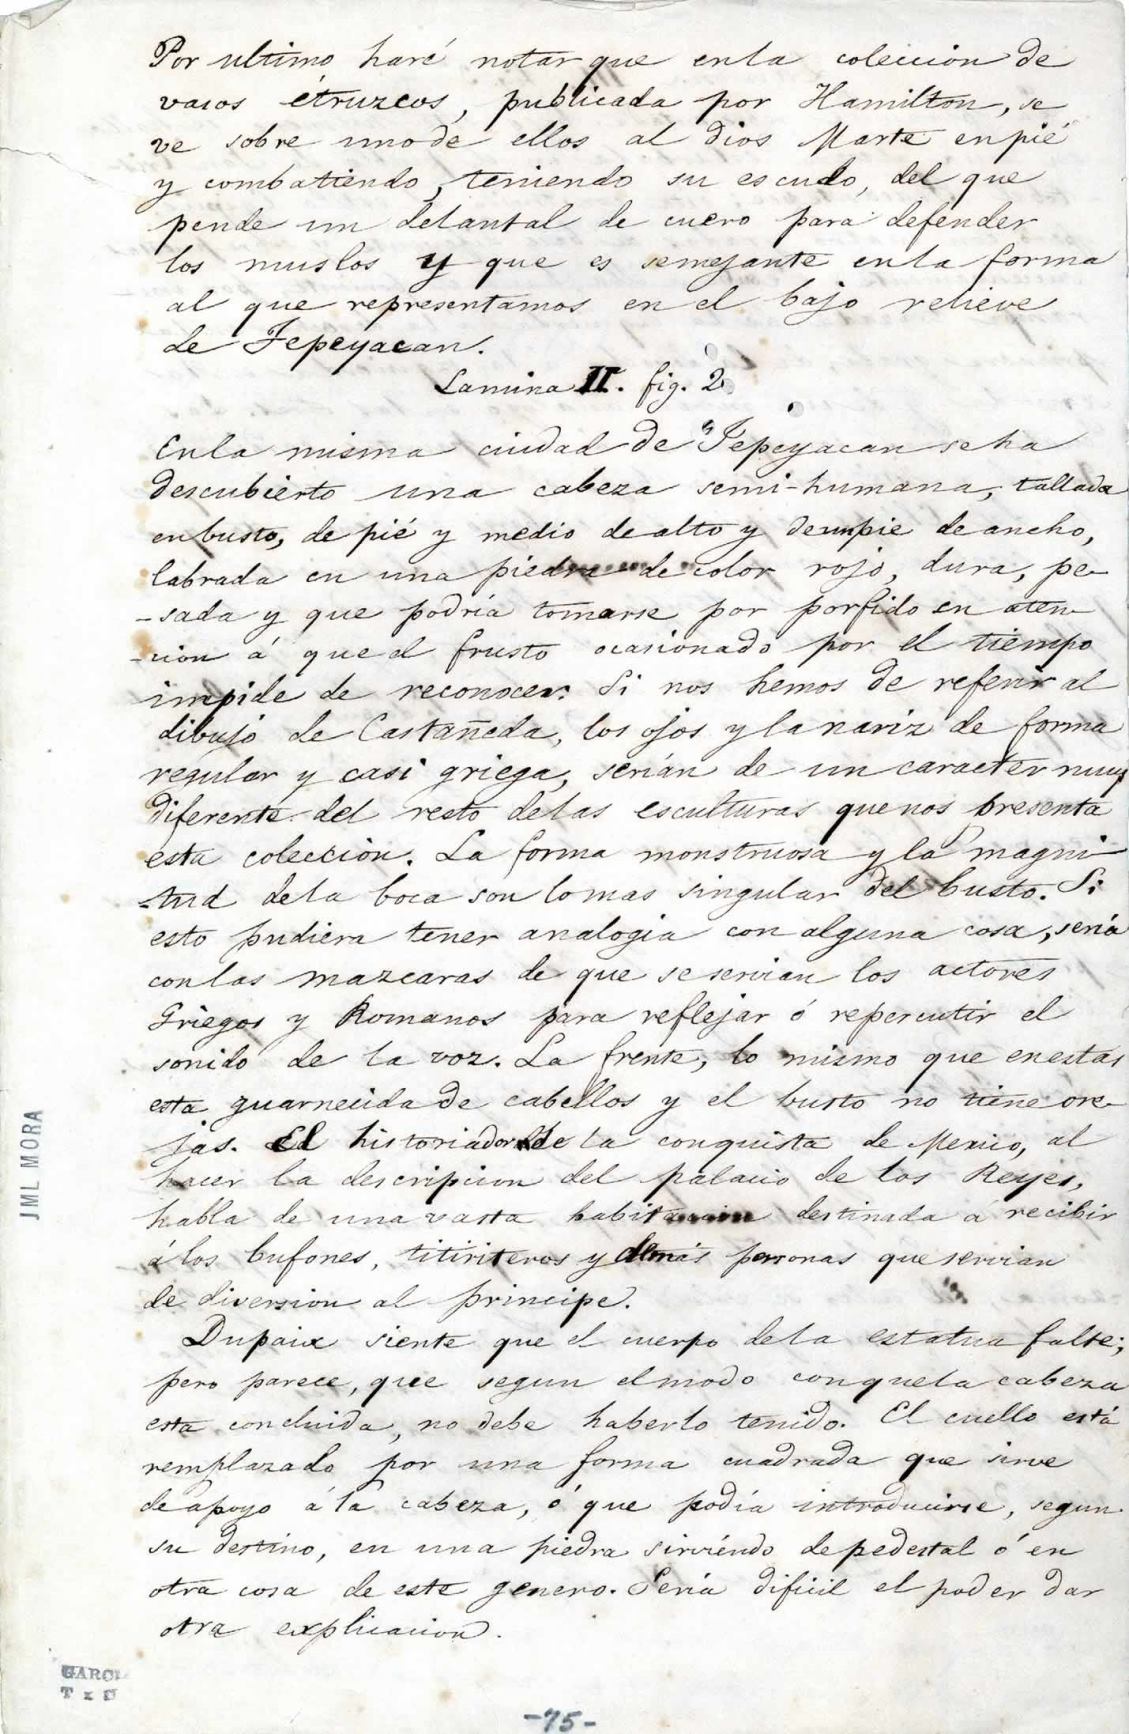 Por ultimo haré notar que en la coleccion de
vasos étruzcos, publicada por Hamilton, se
ve sobre uno de ellos al dios Marte en pié
y combatiendo, teniendo su escudo, del que
pende un delantal de cuero para defender
los muslos y que es semejante en la forma
al que representamos en el bajo relieve
de Tepeyacan.
Lamina II. fig. 2
En la misma ciudad de Tepeyacan se ha
descubierto una cabeza semi-humana, tallada
en busto, de pié y medio de alto y de un pie de ancho,
labrada en una piedra de color rojo, dura, pe-
-sada y que podría tomarse por porfido en aten-
-cion á que el frusto ocasionado por el tiempo
impide de reconocer. Si nos hemos de referir al
dibujo de Castañeda, los ojos y la nariz de forma
regular y casi griega, serían de un caracter muy
diferente del resto de las esculturas que nos presenta
esta colección. La forma monstruosa y la magni-
-tud de la boca son lo mas singular del busto. Si
esto pudiera tener analogia con alguna cosa, sería
con las mazcaras de que se servian los actores
Griegos y Romanos para reflejar ó repercutir el
sonido de la voz. La frente, lo mismo que en estas
esta guarnecida de cabellos y el busto no tiene ore-
jas. El historiador de la conquista de Mexico, al
hacer la descripcion del palacio de los Reyes,
habla de una vasta habitacion destinada a recibir
á los bufones, titiriteros y demás personas que servian
de diversion al principe.
Dupaix siente que el cuerpo de la estatua falte;
pero parece, que segun el modo con que la cabeza
esta concluida, no debe haberlo tenido. El cuello está
remplazado por una forma cuadrada que sirve
de apoyo á la cabeza, ó que podía introducirse, segun
su destino, en una piedra sirviéndo de pedestal ó en
otra cosa de este genero. Sería dificil el poder dar
otra explicacion.
JML MORA
GARCI
T x D
-75-